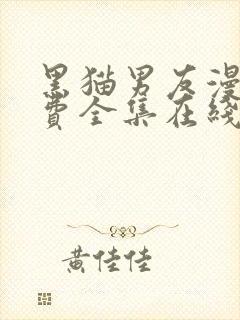 黑猫男友漫
費全集在綫
黄佳佳